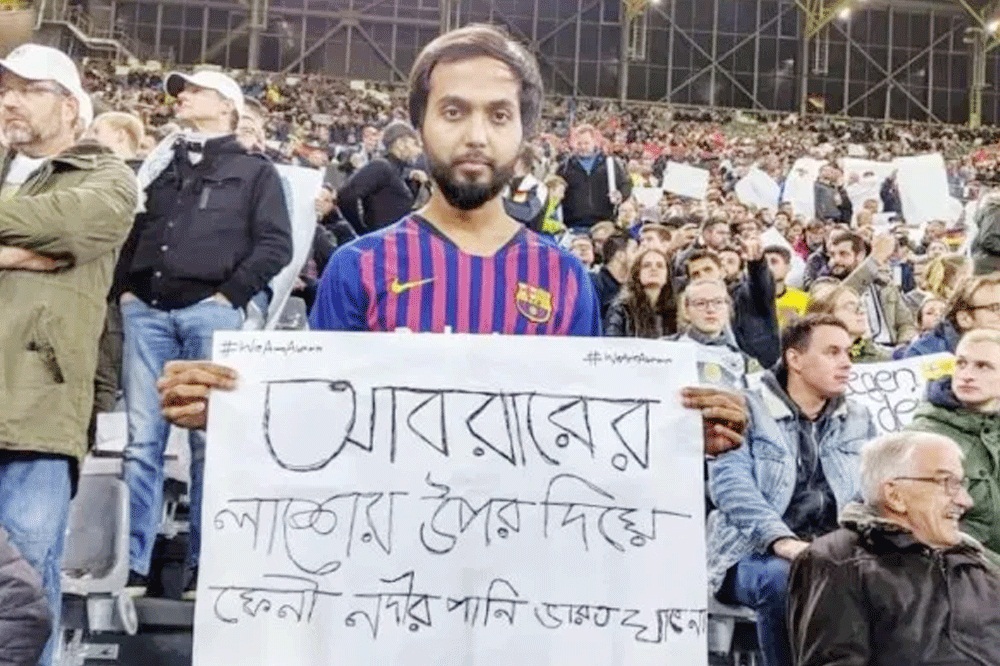 #WeAreAbrar #WeAreAbrar
আবরারের
লাশের উপর দিয়ে
ফেনী নদীর পানি ভারত যাবেনা
egen
de